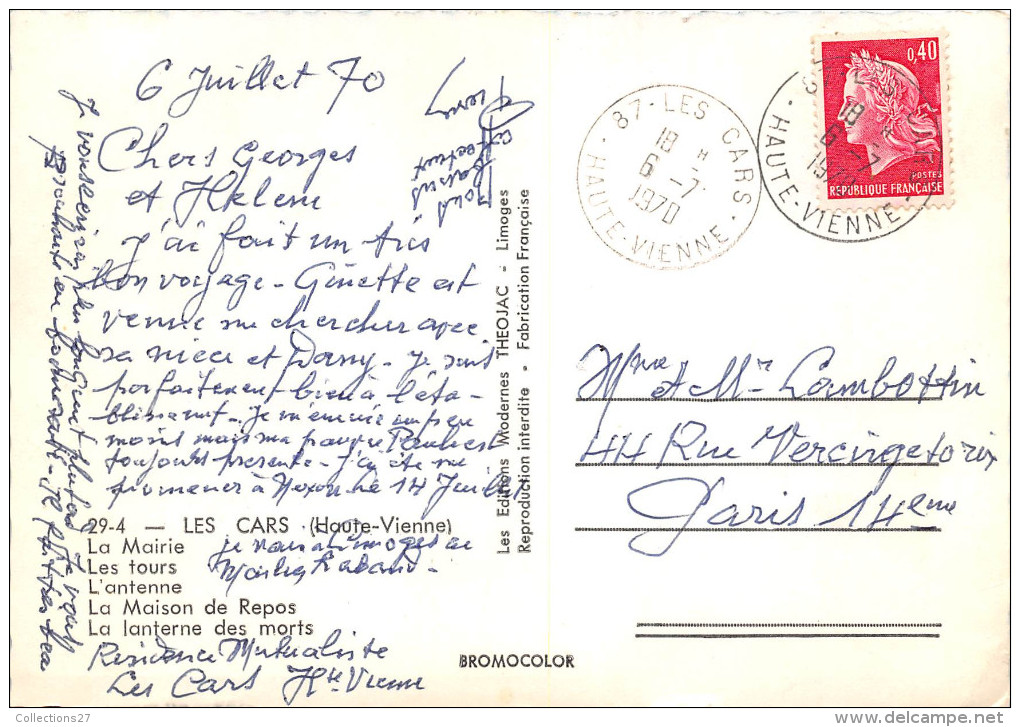 6 Juillet 70
Chers Georges
et Hélène
J'ai fait un très
bon voyage - Ginette est
venue me chercher avec
sa nièce et Dany - Je suis
parfaitement bien à l'éta-
blissement - Je m'ennuie un peu
moins mais ma pauvre Paule est
toujours présente - J'ai été me
promener à Nexon le 14 Juillet
je vais à Limoges
Résidence Mutualiste
Les Cars Hte Vienne
Je vous écrirai plus longuement plus tard
29-4 — LES CARS (Haute-Vienne)
La Mairie
Les tours
L'antenne
La Maison de Repos
La lanterne des morts
Les Editions Modernes THEOJAC - Limoges
Reproduction interdite - Fabrication Française
BROMOCOLOR
87-LES CARS
18 H
6-7
1970
HAUTE-VIENNE
18 H
6-7
1970
HAUTE-VIENNE
0,40
POSTES
REPUBLIQUE FRANÇAISE
Mme et Mr Lambottin
44 Rue Vercingetorix
Paris 14eme
Collections27
www.delcampe.net